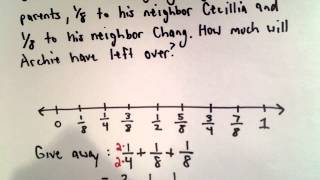 parents, 1/8 to his neighbor Cecillia and
1/8 to his neighbor Chang. How much will
Archie have left over?
0 1/8 1/4 3/8 1/2 5/8 3/4 7/8 1
Give away: 2·1/2·4 + 1/8 + 1/8